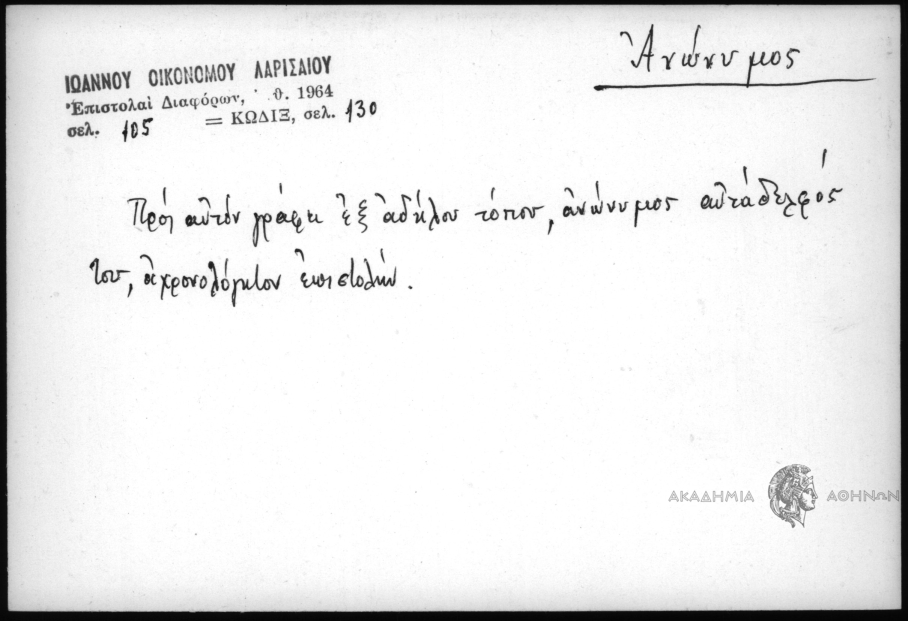 Ἀνώνυμος
ΙΩΑΝΝΟΥ ΟΙΚΟΝΟΜΟΥ ΛΑΡΙΣΑΙΟΥ
Ἐπιστολαὶ Διαφόρων, ϑ. 1964
σελ. 105 = ΚΩΔΙΞ, σελ. 130
Πρὸς αὐτὸν γράφει ἐξ ἀδήλου τόπου, ἀνώνυμος αὐτάδελφός
του, ἀχρονολόγητον ἐπιστολήν.
ΑΚΑΔΗΜΙΑ ΑΘΗΝΩΝ